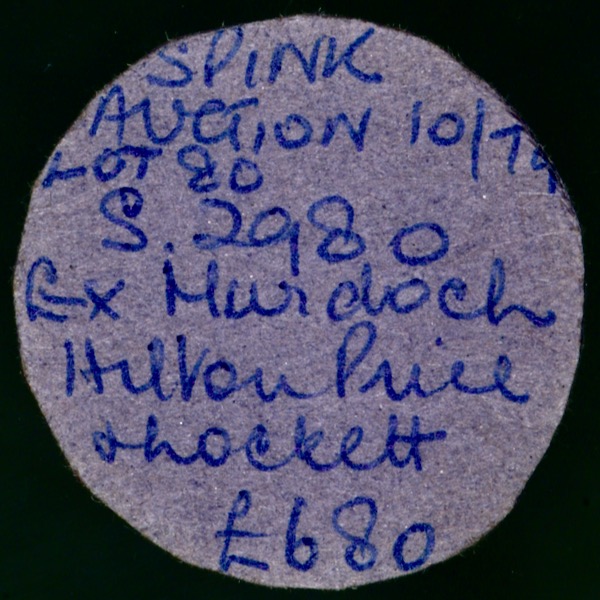 SPINK
AUCTION 10/79
LOT 80
S. 2980
Ex Murdoch
Hilton Price
& Lockett
£680